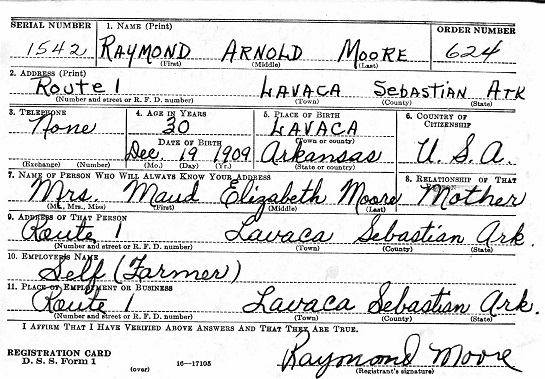 SERIAL NUMBER 1. NAME (Print) ORDER NUMBER
1542 RAYMOND ARNOLD MOORE 624
(First) (Middle) (Last)
2. ADDRESS (Print)
Route 1 LAVACA SEBASTIAN ARK
(Number and street or R. F. D. number) (Town) (County) (State)
3. TELEPHONE 4. AGE IN YEARS 5. PLACE OF BIRTH 6. COUNTRY OF CITIZENSHIP
None 30 LAVACA
(Town or county)
DATE OF BIRTH
Dec. 19 1909 Arkansas U. S. A.
(Exchange) (Number) (Mo.) (Day) (Yr.) (State or country)
7. NAME OF PERSON WHO WILL ALWAYS KNOW YOUR ADDRESS 8. RELATIONSHIP OF THAT PERSON
Mrs. Maud Elizabeth Moore Mother
(Mr., Mrs., Miss) (First) (Middle) (Last)
9. ADDRESS OF THAT PERSON
Route 1 Lavaca Sebastian Ark.
(Number and street or R. F. D. number) (Town) (County) (State)
10. EMPLOYER'S NAME
Self (Farmer)
11. PLACE OF EMPLOYMENT OR BUSINESS
Route 1 Lavaca Sebastian Ark.
(Number and street or R. F. D. number) (Town) (County) (State)
I AFFIRM THAT I HAVE VERIFIED ABOVE ANSWERS AND THAT THEY ARE TRUE.
Raymond Moore
REGISTRATION CARD
D. S. S. Form 1 16—17105 (Registrant's signature)
(over)